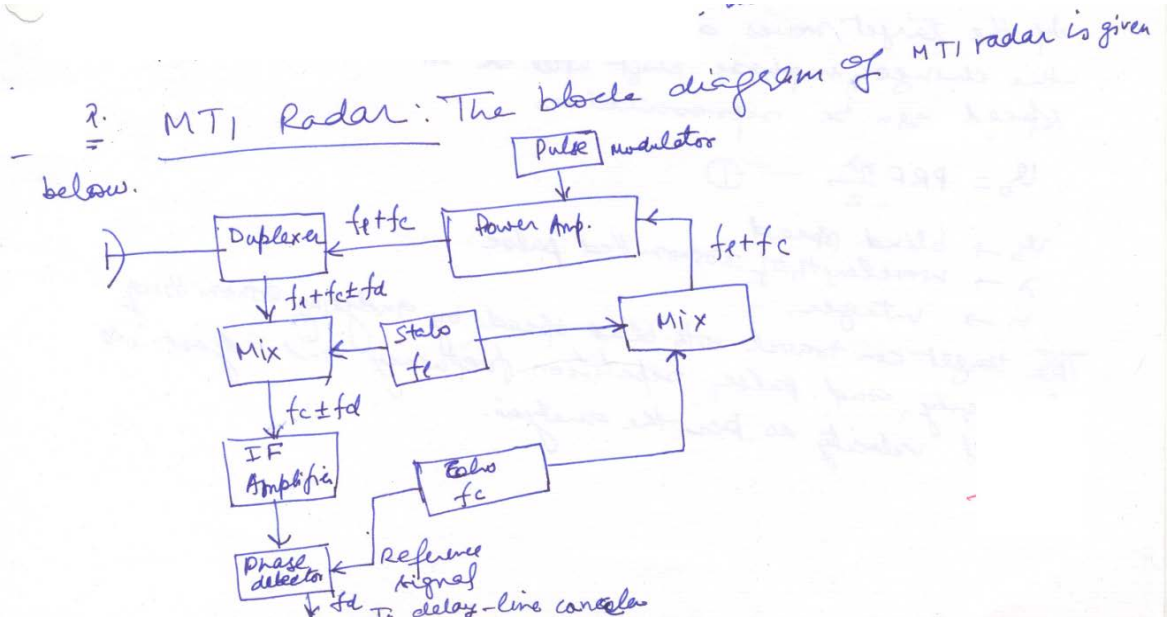 2. MTI Radar: The block diagram of MTI radar is given
below.
Pulse modulator
Duplexer
fl+fc
Power Amp.
fl+fc
fl+fc±fd
Mix
Stalo
fl
Mix
fc±fd
IF
Amplifier
Coho
fc
Phase
detector
Reference
signal
fd
To delay-line canceler